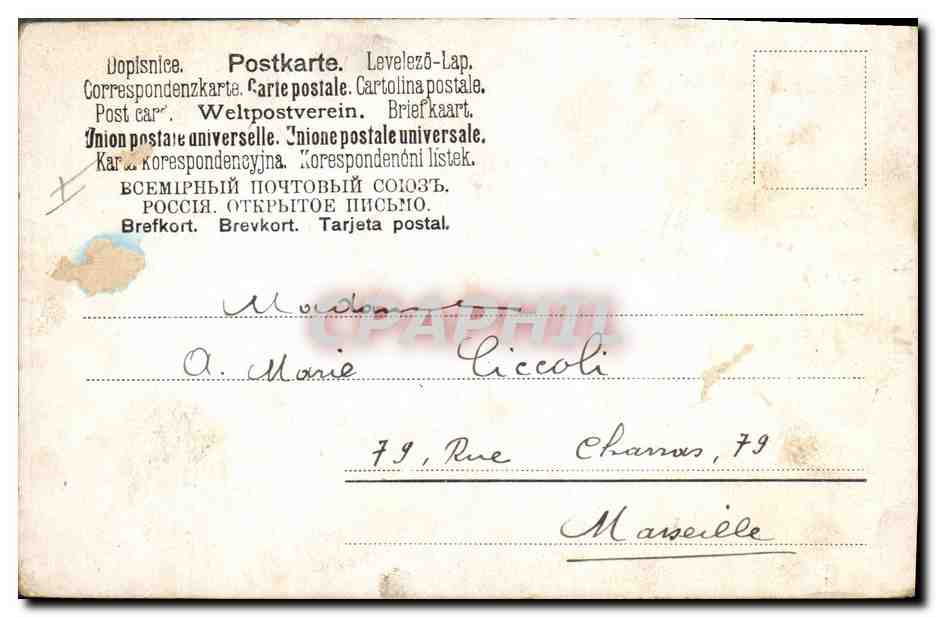 Dopisnice. Postkarte. Levelező-Lap.
Correspondenzkarte. Carte postale. Cartolina postale.
Post car. Weltpostverein. Briefkaart.
Union postale universelle. Unione postale universale.
Karta korespondencyjna. Korespondenčni listek.
ВСЕМІРНЫЙ ПОЧТОВЫЙ СОЮЗЪ.
РОССІЯ. ОТКРЫТОЕ ПИСЬМО.
Brefkort. Brevkort. Tarjeta postal.
Madame
CPAPHIL
A. Marie Ciccoli
79, Rue Charras, 79
Marseille